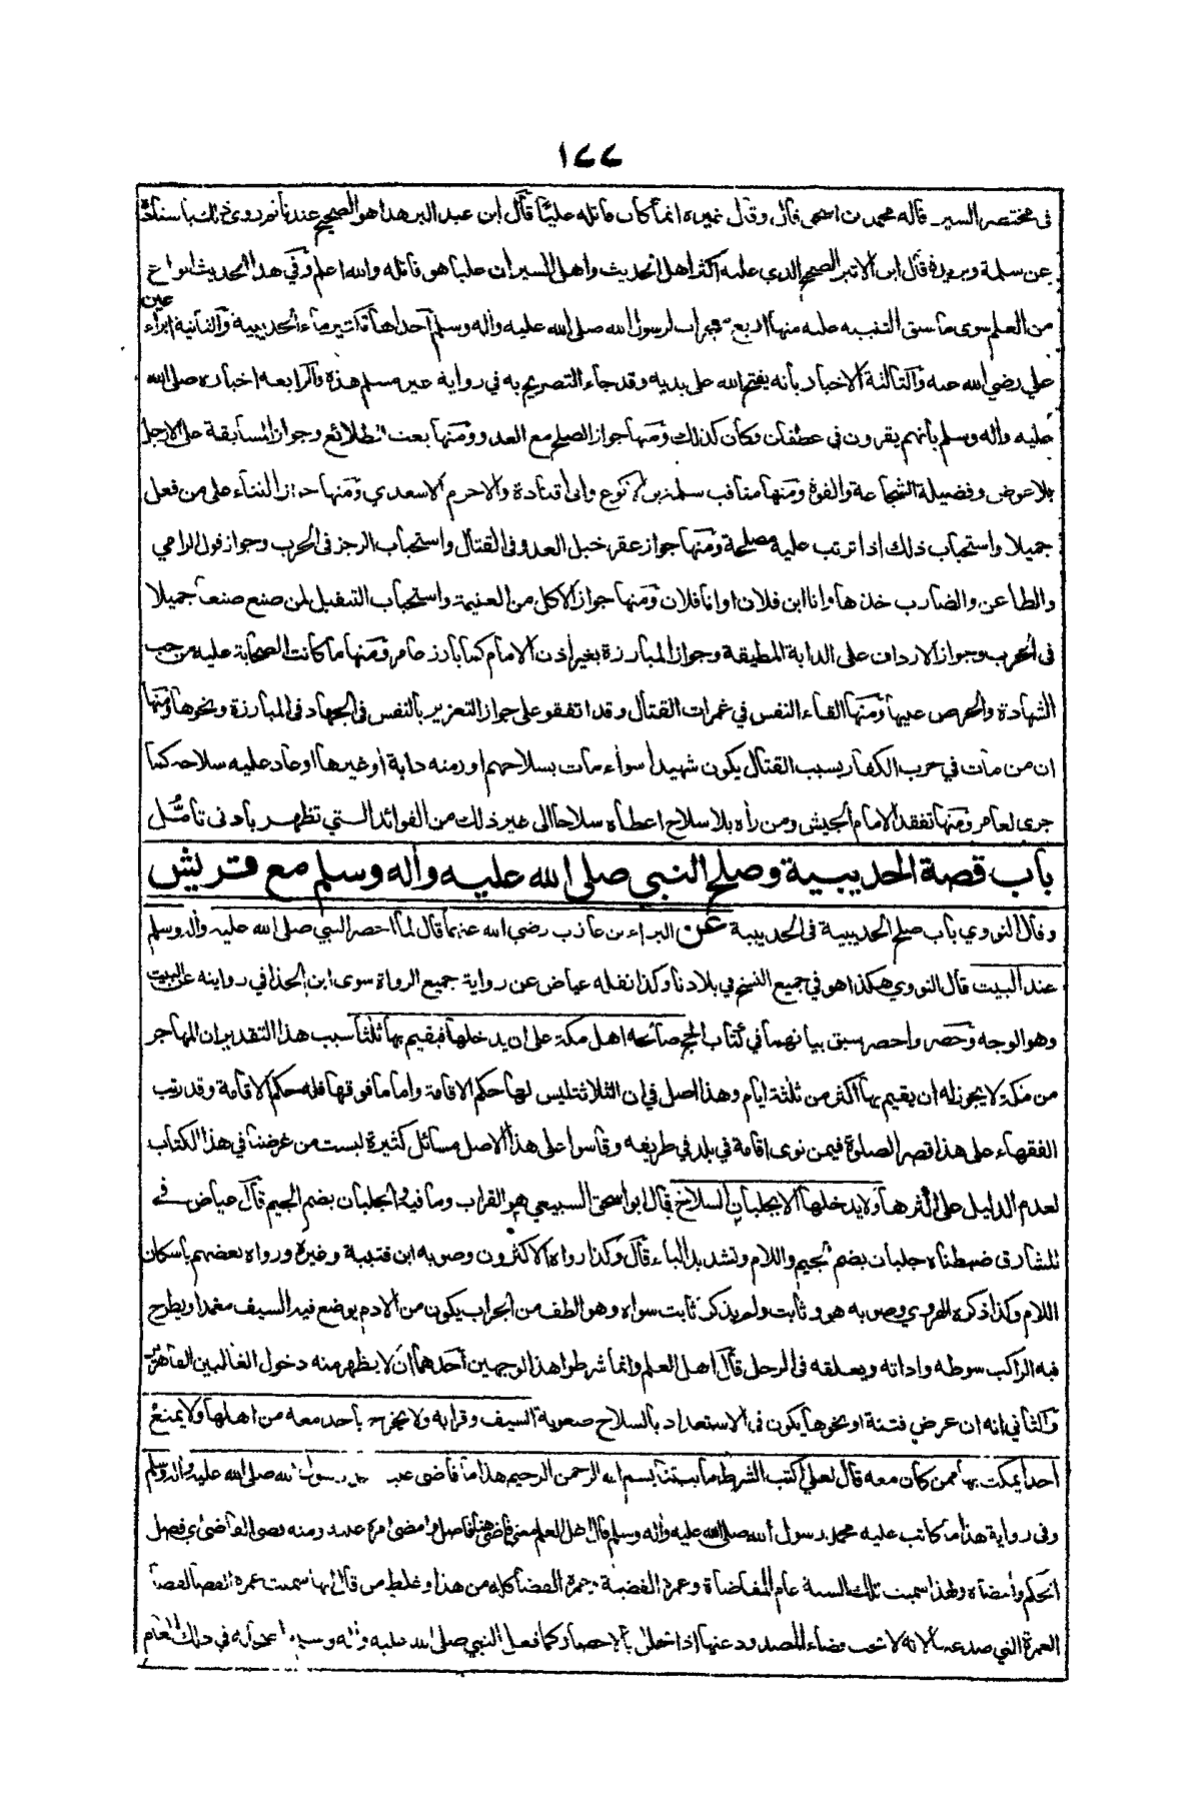 ١٤٤
فى مختصر السير قاله محمد بن اسحق قال وقال غيره انما كان قاتله عليا قال ابن عبد البر هذا هو الصحيح عندنا ثم روى ذلك باسناده
عن سلمة وبريدة قال ابن الاثير الصحيح الذي عليه اكثر اهل الحديث واهل السير ان عليا هو قاتله والله اعلم وفي هذا الحديث انواع
من العلم سوى ما سبق التنبيه عليه منها اربع معجزات لرسول الله صلى الله عليه واله وسلم احداها تكثير ماء الحديبية والثانية ابراء عين
علي رضي الله عنه والثالثة الاخبار بانه يفتح الله على يديه وقد جاء التصريح به في رواية غير مسلم هذه والرابعة اخباره صلى الله
عليه واله وسلم بانهم يقرون في غطفان وكان كذلك ومنها جواز الصلح مع العدو ومنها بعث الطلائع وجواز المسابقة على الارجل
بلا عوض وفضيلة الشجاعة والقوة ومنها مناقب سلمة بن الاكوع وابى قتادة والاخرم الاسعدي ومنها جواز الثناء على من فعل
جميلا واستحباب ذلك اذا ترتب عليه مصلحة ومنها جواز عقر خيل العدو فى القتال واستحباب الرجز فى الحرب وجواز قول الرامي
والطاعن والضارب خذها وانا ابن فلان او انا فلان ومنها جواز الاكل من الغنيمة واستحباب التنفيل لمن صنع صنعا جميلا
فى الحرب وجواز الارداف على الدابة المطيقة وجواز المبارزة بغير اذن الامام كما بارز عامر ومنها ما كانت الصحابة عليه من حب
الشهادة والحرص عليها ومنها القاء النفس في غمرات القتال وقد اتفقوا على جواز التعزير بالنفس فى الجهاد فى المبارزة ونحوها ومنها
ان من مات في حرب الكفار بسبب القتال يكون شهيدا سواء مات بسلاحهم او رمته دابة او غيرها او عاد عليه سلاحه كما
جرى لعامر ومنها تفقد الامام الجيش ومن رأه بلا سلاح اعطاه سلاحا الى غير ذلك من الفوائد التي تظهر بادنى تأمّل
باب قصة الحديبية وصلح النبي صلى الله عليه واله وسلم مع قريش
وقال النووي باب صلح الحديبية فى الحديبية عن البراء بن عازب رضي الله عنهما قال لما احصر النبي صلى الله عليه واله وسلم
عند البيت قال النووي هكذا هو في جميع النسخ في بلادنا وكذا نقله عياض عن رواية جميع الرواة سوى ابن الحذا في روايته عن البيت
وهو الوجه وحصر واحصر سبق بيانهما في كتاب الحج صالحه اهل مكة على ان يدخلها فيقيم بها ثلثا سبب هذا التقدير ان المهاجر
من مكة لا يجوز له ان يقيم بها اكثر من ثلثة ايام وهذا اصل في ان الثلاثة ليس لها حكم الاقامة واما ما فوقها فله حكم الاقامة وقد رتب
الفقهاء على هذا قصر الصلوة فيمن نوى اقامة في بلد في طريقه وقاسوا على هذا الاصل مسائل كثيرة ليست من غرضنا في هذا الكتاب
لعدم الدليل على اكثرها ولا يدخلها الا بجلبان السلاح قال ابو اسحق السبيعي هو القراب وما فيه والجلبان بضم الجيم قال عياض في
المشارق ضبطناه جلبان بضم الجيم واللام وتشديد الباء قال وكذا رواه الاكثرون وصوبه ابن قتيبة وغيره ورواه بعضهم باسكان
اللام وكذا ذكره الهروي وصوبه هو وثابت ولم يذكر ثابت سواه وهو الطف من الجراب يكون من الادم يوضع فيه السيف مغمدا ويطرح
فيه الراكب سوطه واداته ويعلقه فى الرحل قال اهل العلم وانما شرطوا هذا لوجهين احدهما ان لا يظهر منه دخول الغالبين القاهرين
والثاني انه ان عرض فتنة او نحوها يكون فى الاستعداد بالسلاح صعوبة السيف وقرابه ولا يخرج باحد معه من اهلها ولا يمنع
احدا يمكث بها ممن كان معه قال لعلي اكتب الشرط بيننا بسم الله الرحمن الرحيم هذا ما قاضى عليه محمد رسول الله صلى الله عليه واله وسلم
وفى رواية هذا ما كاتب عليه محمد رسول الله صلى الله عليه واله وسلم قال اهل العلم معنى قاضى هنا فاصل وامضى امره عليه ومنه قضى القاضى اي فصل
الحكم وامضاه ولهذا سميت تلك السنة عام المقاضاة وعمرة القضية وعمرة القضاء كله من هذا وغلط من قال انها سميت عمرة القضاء لقضاء
العمرة التي صد عنها لانه لا يجب قضاء المصدود عنها اذا تحلل بالاحصار كما فعل النبي صلى الله عليه واله وسلم واصحابه في ذلك العام